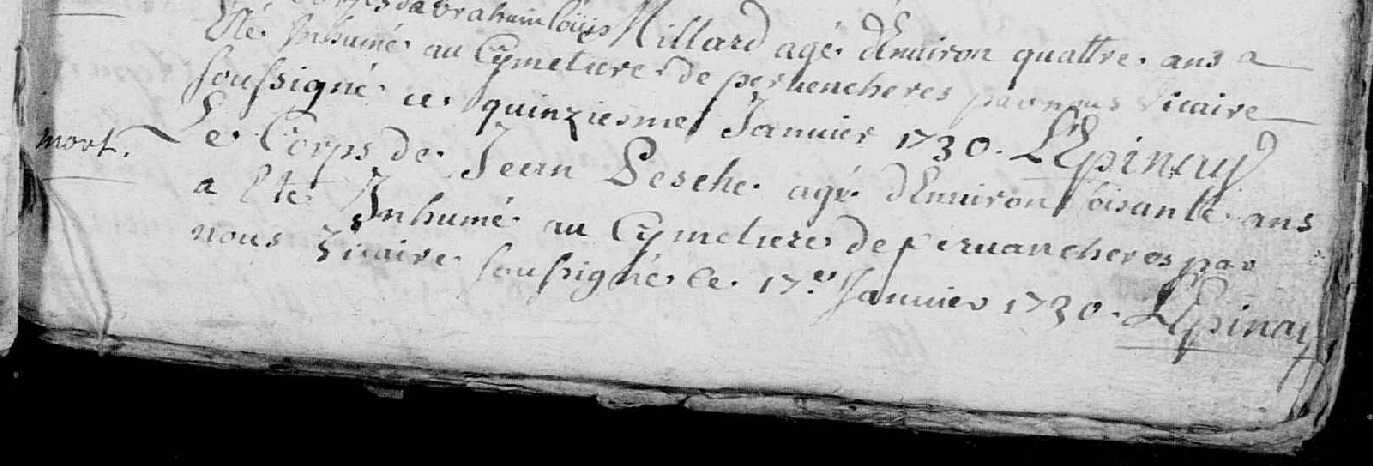 corps d'abraham louis Millard agé d'Enuiron quattre ans a
Eté Inhumé au Cymetiere de peruencheres par nous Vicaire
soussigné ce quinziesme Januier 1730. LEpinay
mort. Le Corps de Jean Pesche agé d'Enuiron soisante ans
a Eté Inhumé au Cymetiere de peruancheres par
nous Vicaire soussigné le 17.e Januier 1730. LEpinay